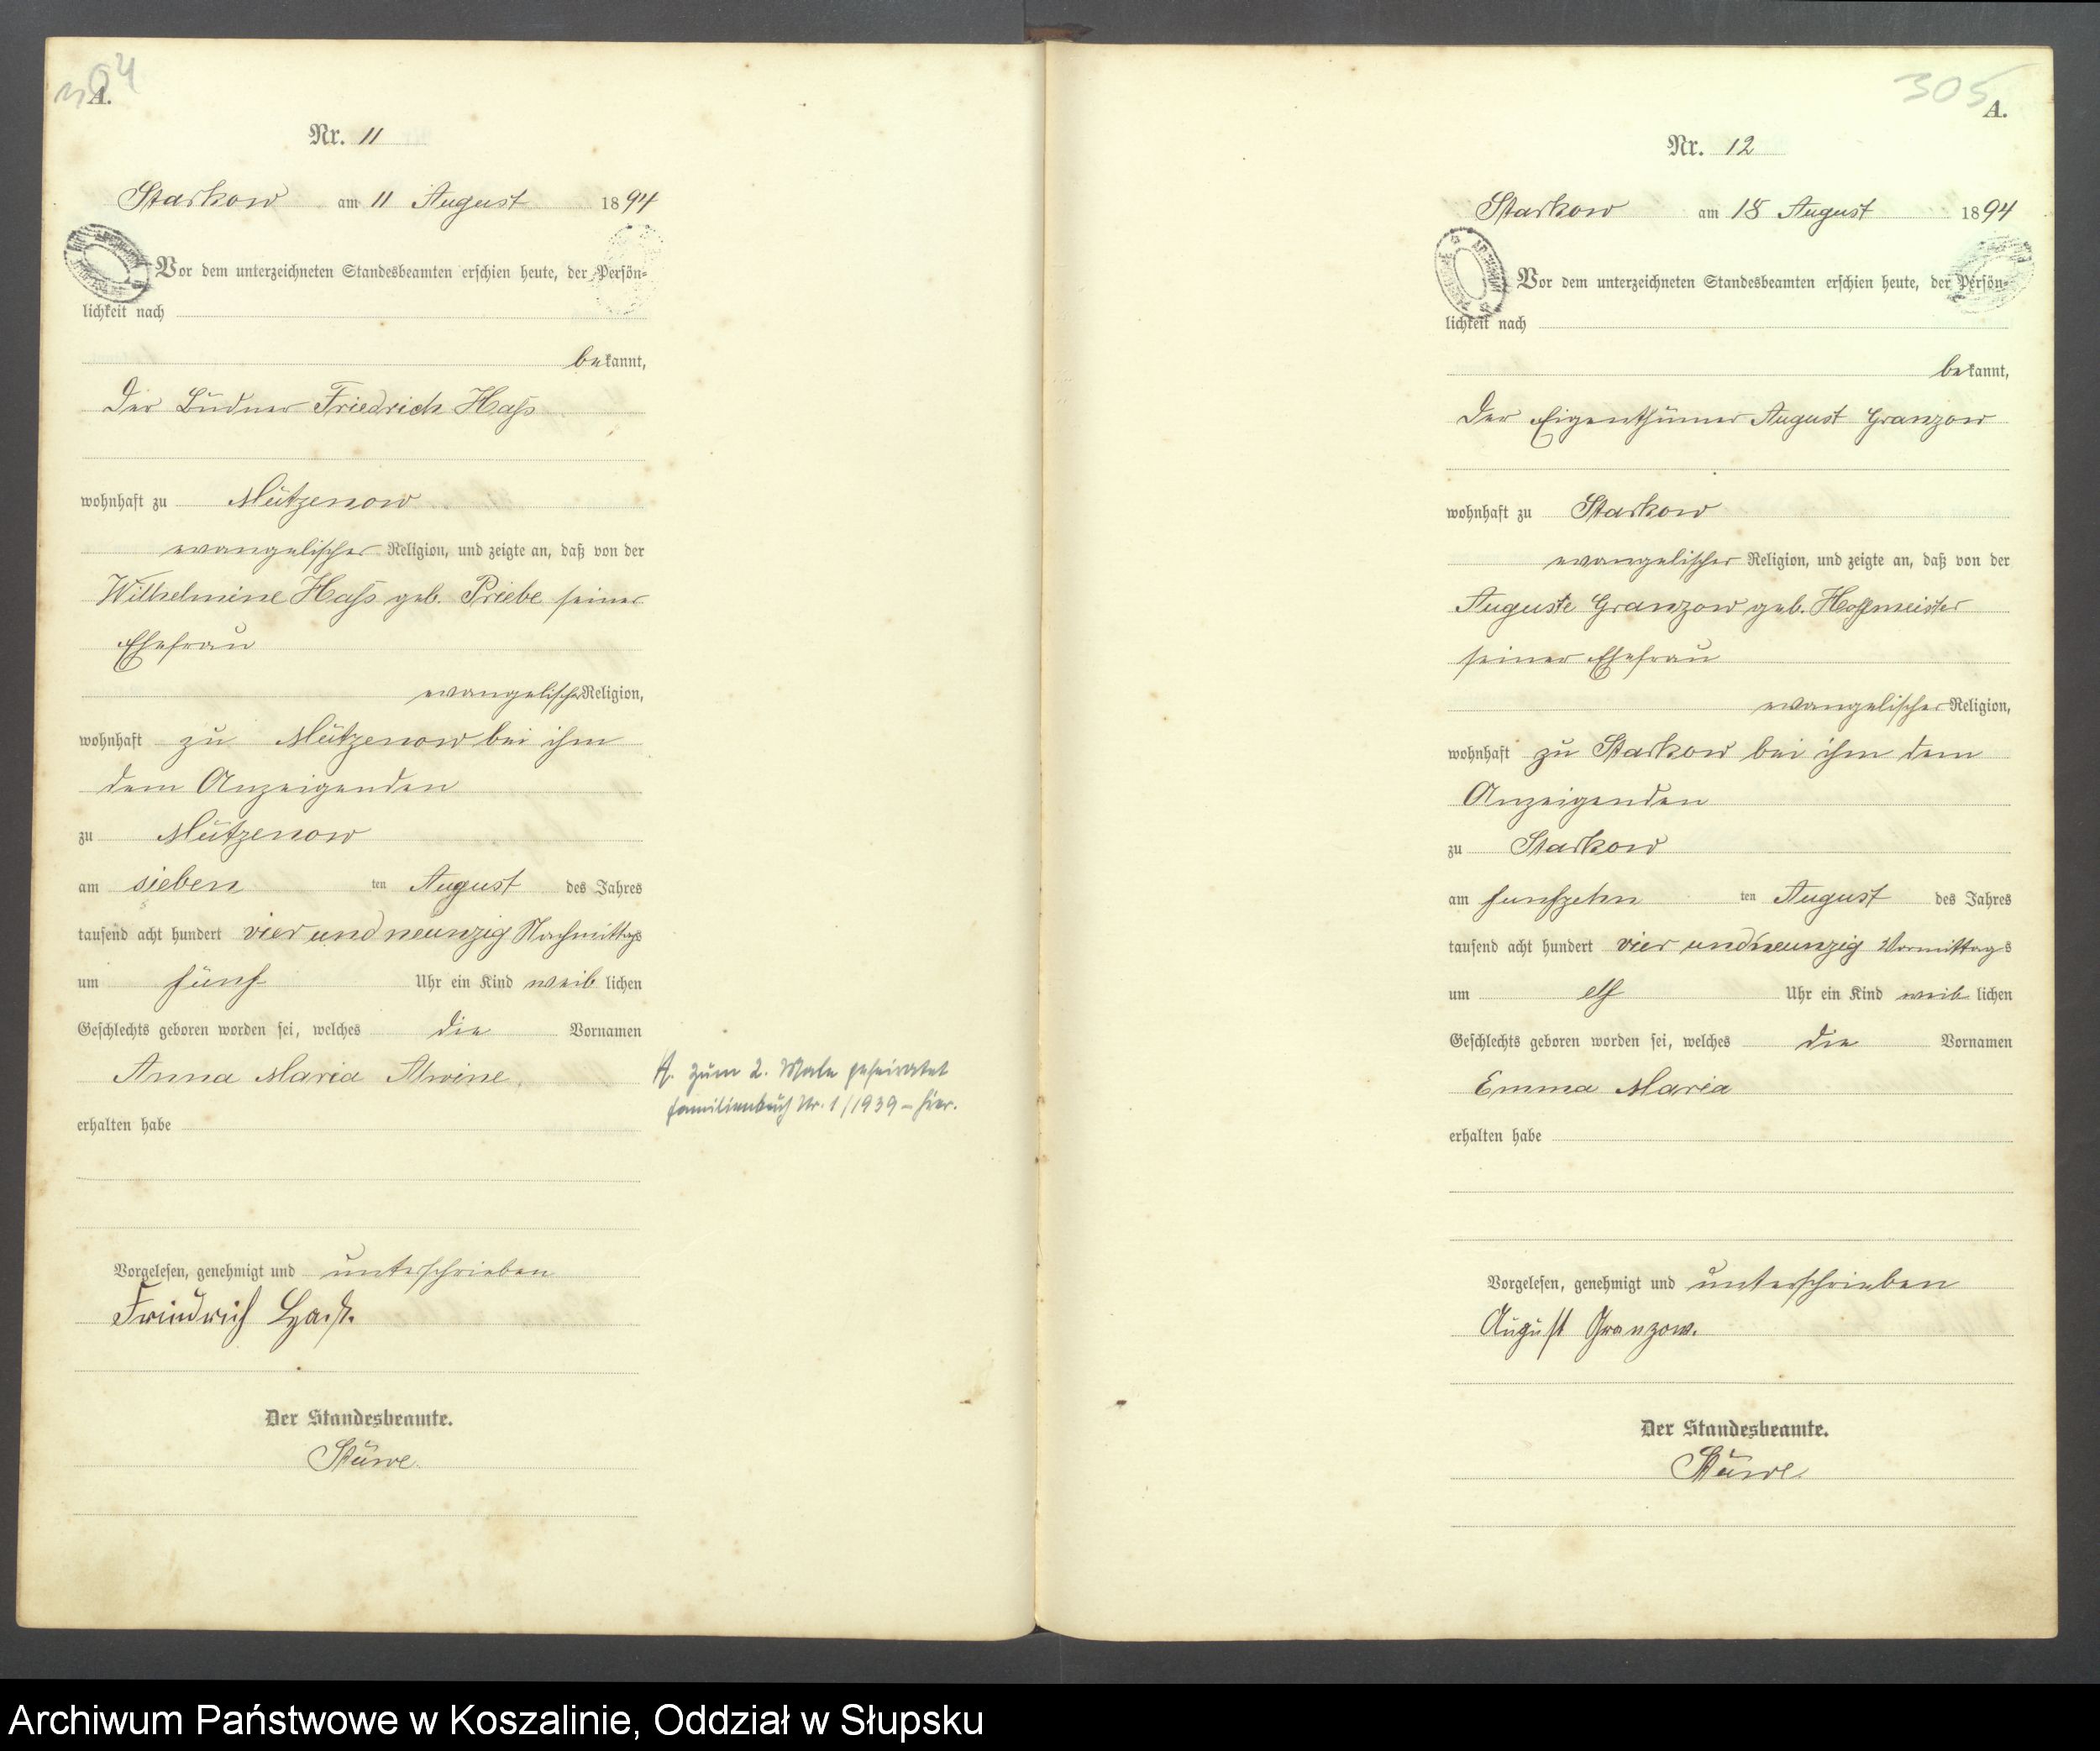 304
A.
Nr. 11
Starkow am 11 August 1894
Vor dem unterzeichneten Standesbeamten erschien heute, der Persön-
lichkeit nach
bekannt,
der Büdner Friedrich Haß
wohnhaft zu Mützenow
evangelischer Religion, und zeigte an, daß von der
Wilhelmine Haß geb. Priebe seiner
Ehefrau
evangelischer Religion,
wohnhaft zu Mützenow bei ihm
dem Anzeigenden
zu Mützenow
am sieben ten August des Jahres
tausend acht hundert vier und neunzig Nachmittags
um fünf Uhr ein Kind weib lichen
Geschlechts geboren worden sei, welches die Vornamen
Anna Maria Alwine.
erhalten habe
Vorgelesen, genehmigt und unterschrieben
Friedrich Haß.
Der Standesbeamte.
Stüwe.
H. zum 2. Male geheiratet
Familienbuch Nr. 1/1939 – hier.
305
A.
Nr. 12
Starkow am 18 August 1894
Vor dem unterzeichneten Standesbeamten erschien heute, der Persön-
lichkeit nach
bekannt,
der Eigenthümer August Granzow
wohnhaft zu Starkow
evangelischer Religion, und zeigte an, daß von der
Auguste Granzow geb. Hoffmeister
seiner Ehefrau
evangelischer Religion,
wohnhaft zu Starkow bei ihm dem
Anzeigenden
zu Starkow
am funfzehn ten August des Jahres
tausend acht hundert vier und neunzig Vormittags
um elf Uhr ein Kind weib lichen
Geschlechts geboren worden sei, welches die Vornamen
Emma Maria
erhalten habe
Vorgelesen, genehmigt und unterschrieben
August Granzow.
Der Standesbeamte.
Stüwe.
Archiwum Państwowe w Koszalinie, Oddział w Słupsku